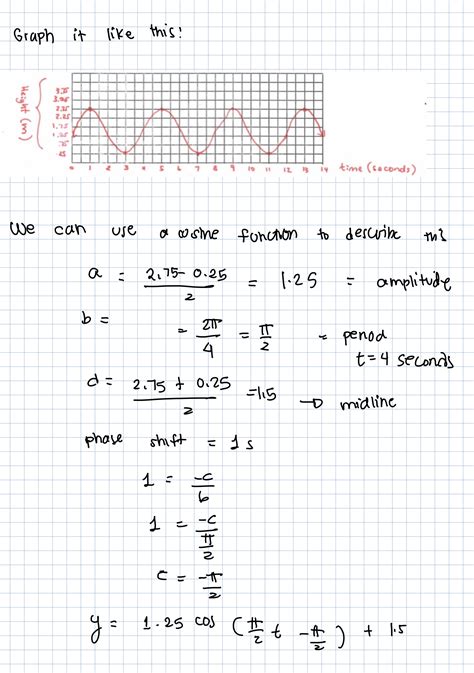 Graph it like this!
Height (m)
2.75
2.25
1.75
.75
.25
0 1 2 3 4 5 6 7 8 9 10 11 12 13 14 time (seconds)
We can use a cosine function to describe this
a = 2.75 - 0.25 / 2 = 1.25 = amplitude
b = = 2π / 4 = π / 2 = period
t = 4 seconds
d = 2.75 + 0.25 / 2 = 1.5 → midline
phase shift = 1 s
1 = -c / b
1 = -c / π / 2
c = -π / 2
y = 1.25 cos (π/2 t - π/2) + 1.5